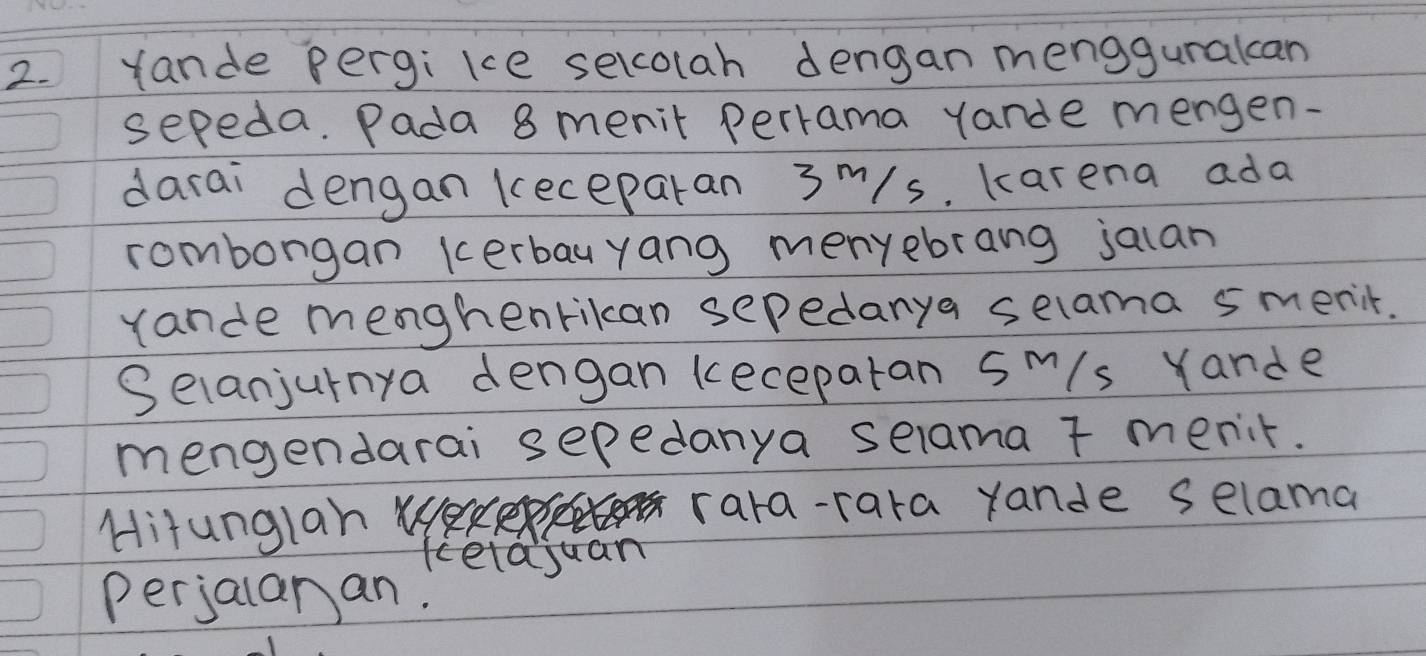 2. Yande pergi ke sekolah dengan menggunakan
sepeda. Pada 8 menit pertama Yande mengen-
darai dengan kecepatan 3 m/s. Karena ada
rombongan kerbau yang menyebrang jalan
Yande menghentikan sepedanya selama 5 menit.
Selanjutnya dengan kecepatan 5 m/s Yande
mengendarai sepedanya selama 7 menit.
Hitunglah rata-rata Yande selama
kelajuan
perjalanan.